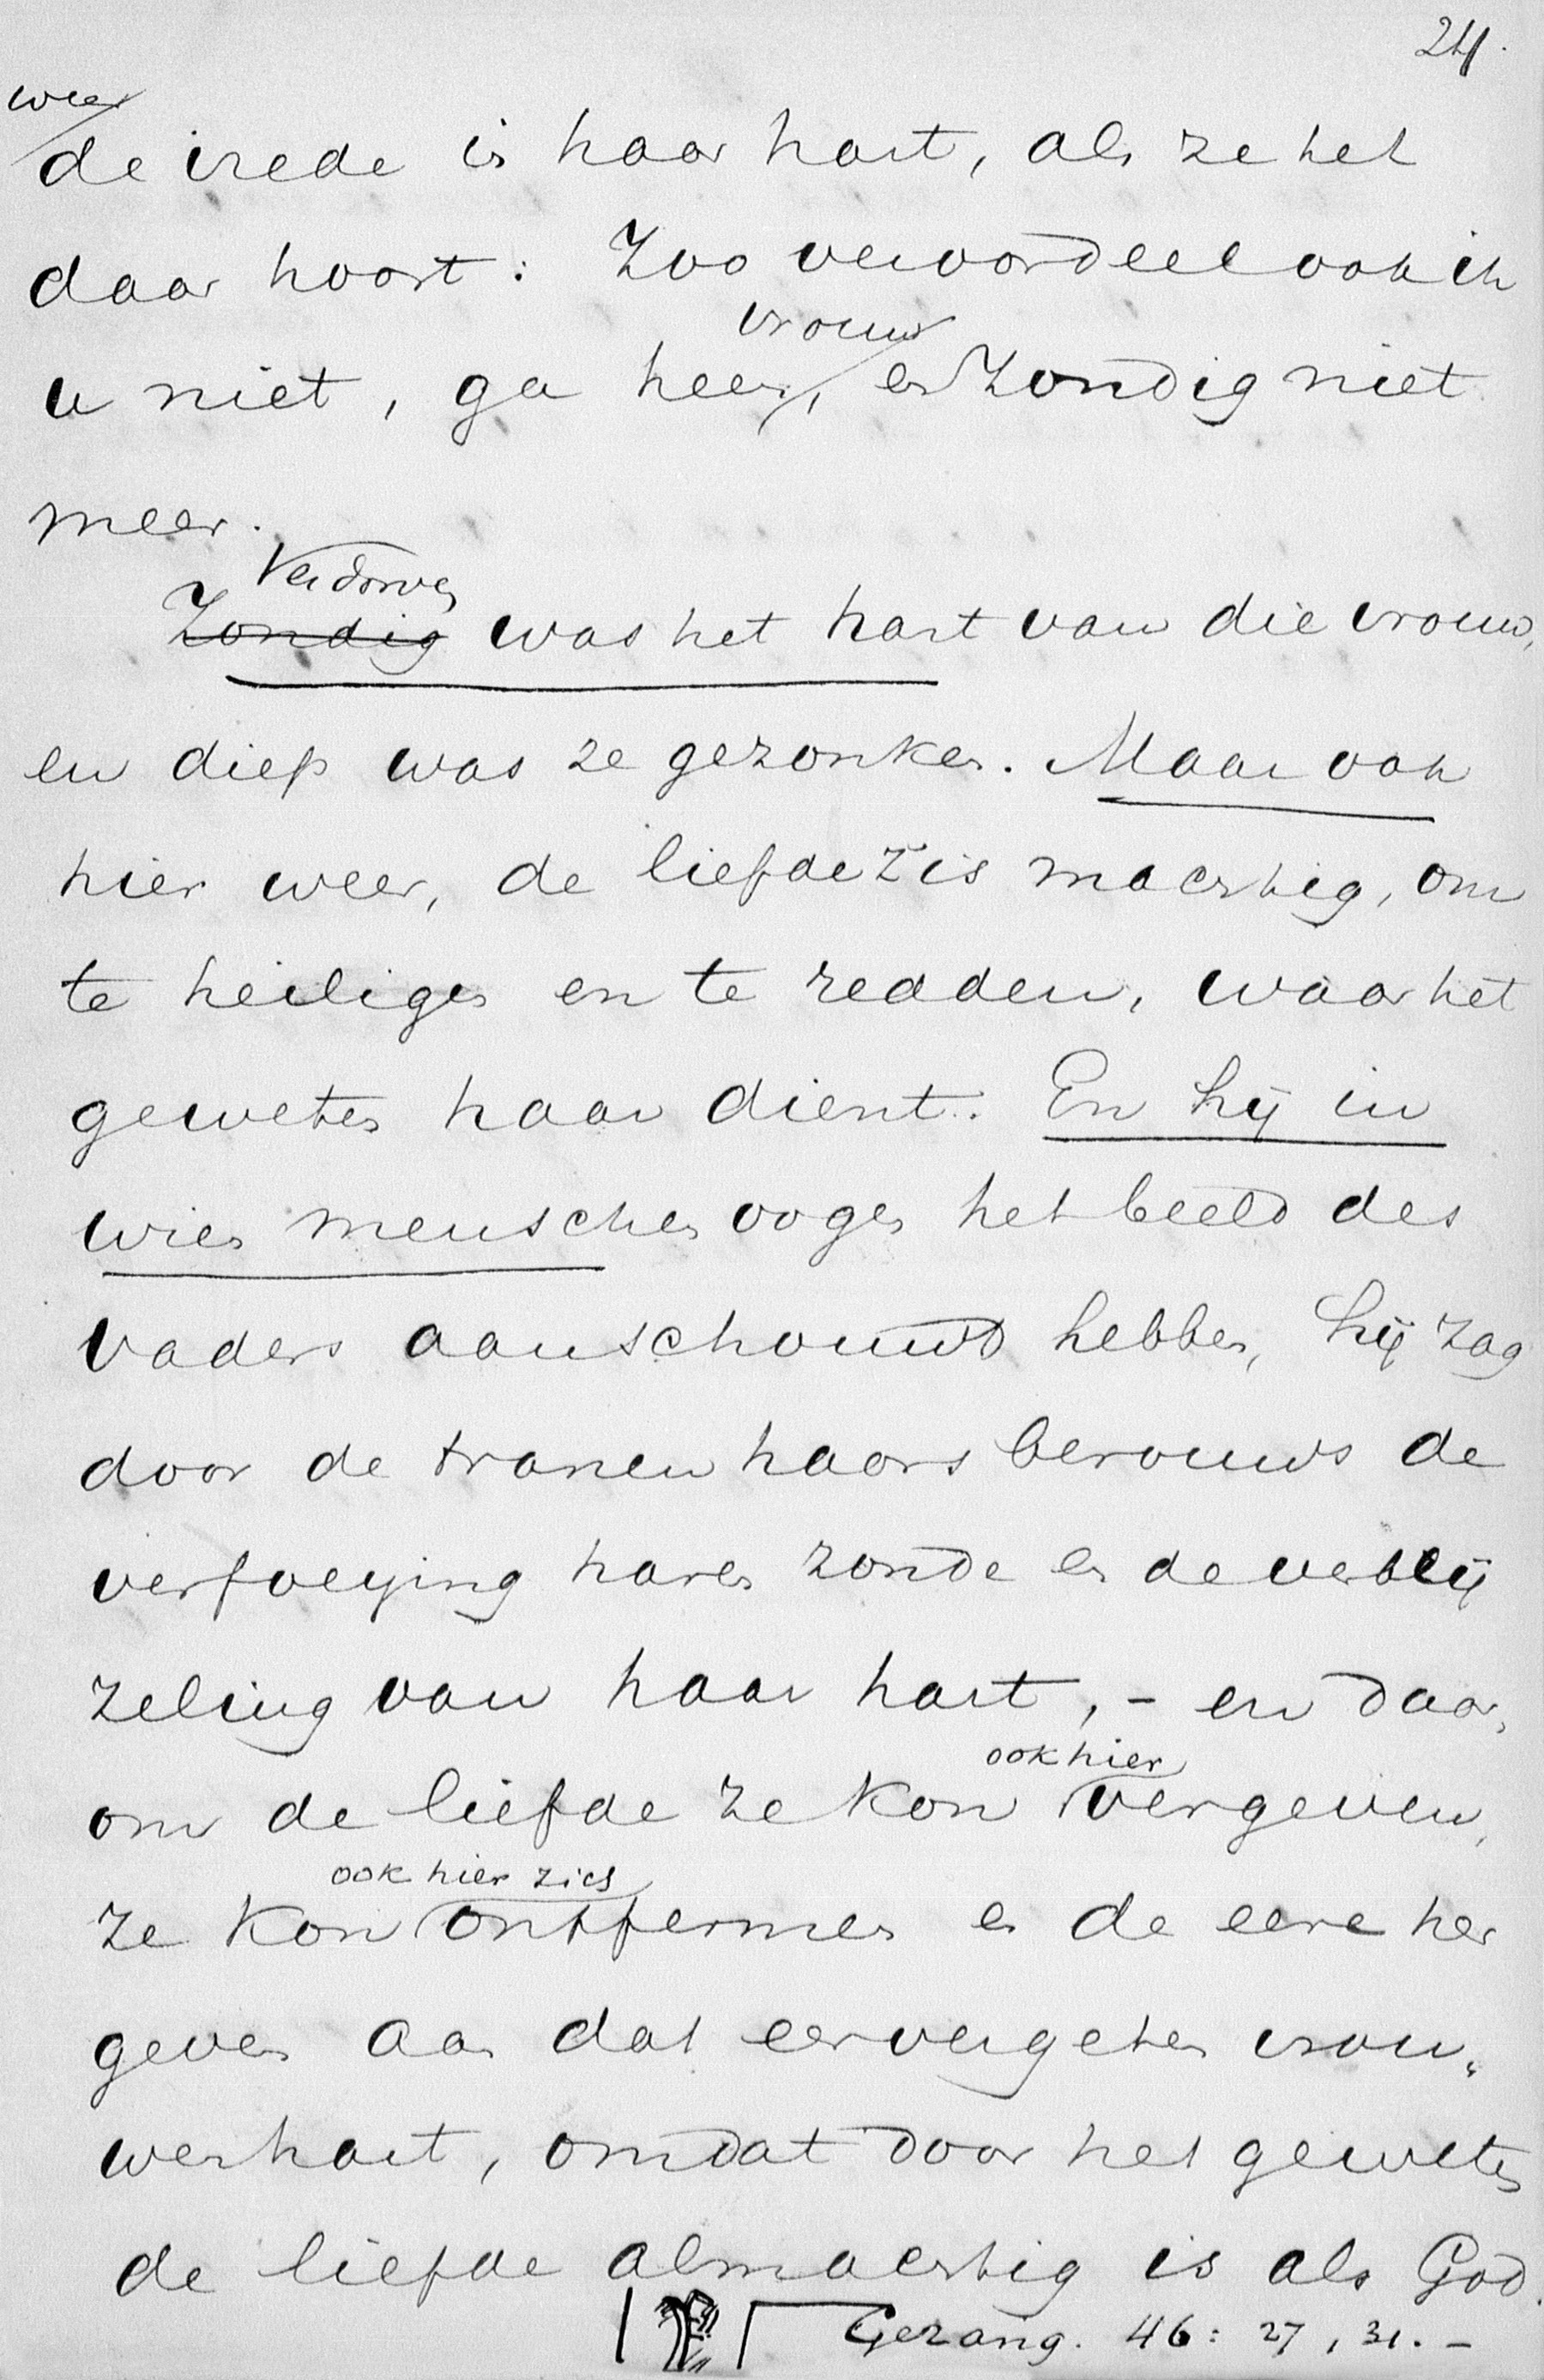 24.
weer
de vrede in haar hart, als ze het
daar hoort: Zoo veroordeel ook ik
vrouw
u niet, ga heen, en zondig niet
meer.
Verdorven
Zondig was het hart van die vrouw,
en diep was ze gezonken. Maar ook
hier weer, de liefde z is machtig, om
te heiligen en te redden, waar het
geweten haar dient. En hij in
wien menschenoogen het beeld des
vaders aanschouwd hebben, hij zag
door de tranen haars berouws de
verfoeying harer zonde en de verbrij
zeling van haar hart, - en daar,
ook hier
om de liefde ze kon vergeven,
ook hier zich
ze kon ontfermen en de eere her
geven aan dat eervergeten vrou„
wenhart, omdat door het geweten
de liefde almachtig is als God.
Gezang. 46: 27, 31. -